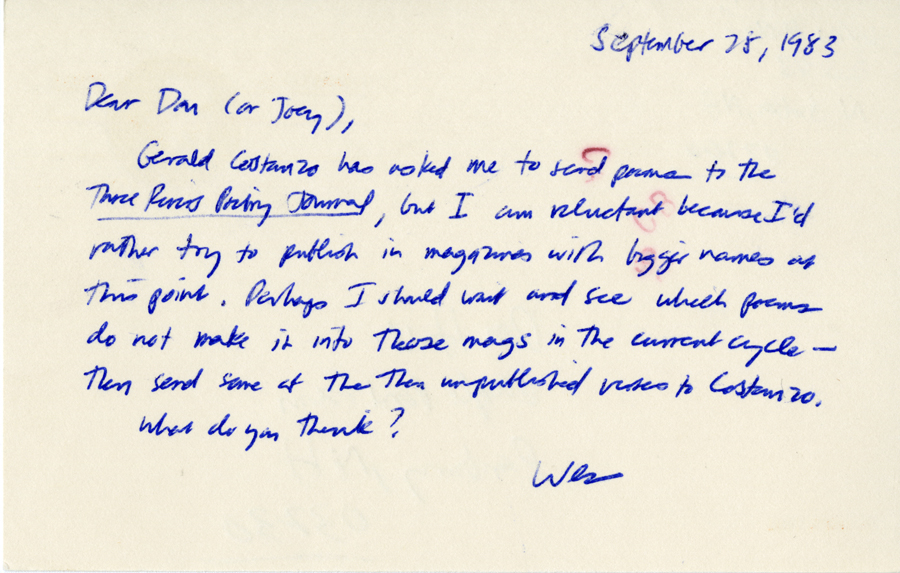 September 28, 1983
Dear Dan (or Joey),
Gerald Costanzo has asked me to send poems to the
Three Rivers Poetry Journal, but I am reluctant because I'd
rather try to publish in magazines with bigger names at
this point. Perhaps I should wait and see which poems
do not make it into those mags in the current cycle —
then send some of the then unpublished verses to Costanzo.
What do you think?
Wes